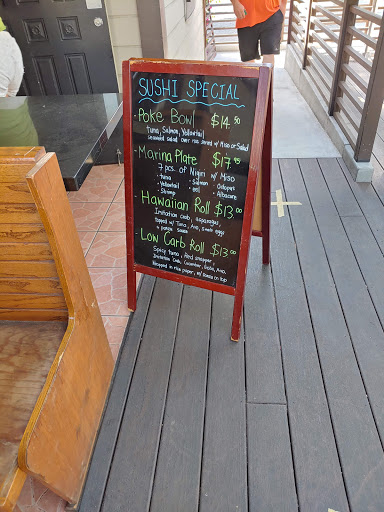 SUSHI SPECIAL
· Poke Bowl $14.50
Tuna, Salmon, Yellowtail
seaweed salad over rice served w/ Miso or Salad
· Marina Plate $17.95
7 pcs of Nigiri w/ Miso
· Tuna · Salmon · Octopus
· Yellowtail · eel · Albacore
· Shrimp
Hawaiian Roll $13.00
Imitation crab, asparagus,
topped w/ Tuna, Avo, smelt eggs
& ponzu sauce
· Low Carb Roll $13.00
Spicy tuna, Red snapper,
Imitation Crab, Cucumber, Avo
Wrapped in rice paper, w/ on top